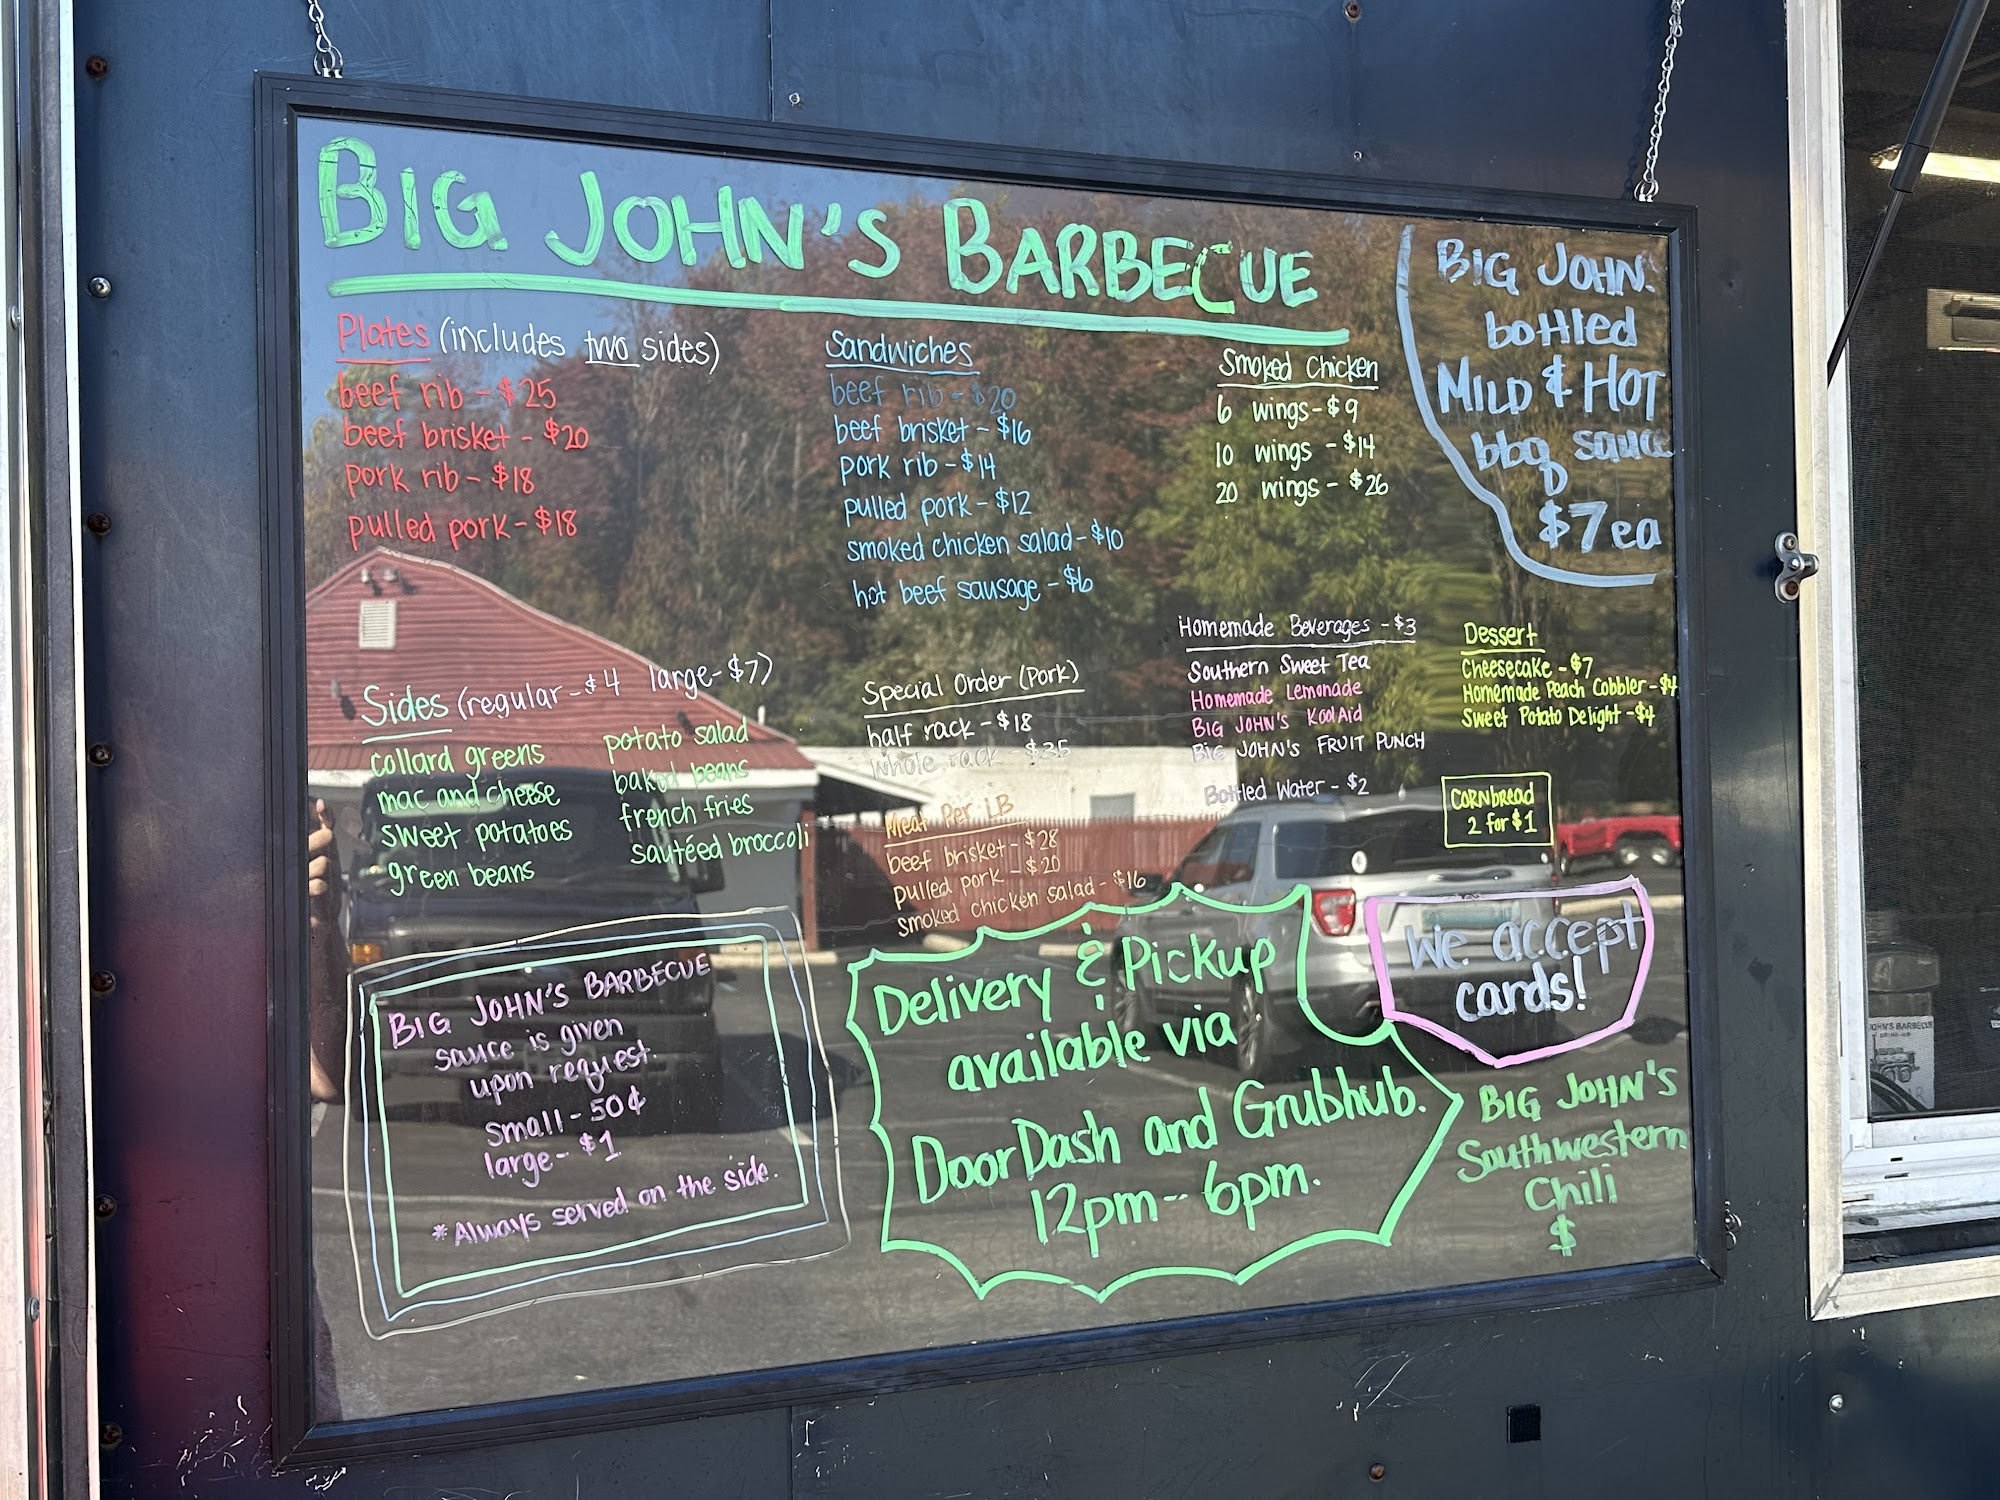 BIG JOHN'S BARBECUE
Plates (includes two sides)
beef rib - $25
beef brisket - $20
pork rib - $18
pulled pork - $18
Sandwiches
beef rib - $20
beef brisket - $16
pork rib - $14
pulled pork - $12
smoked chicken salad - $10
hot beef sausage - $6
Smoked Chicken
6 wings - $9
10 wings - $14
20 wings - $26
BIG JOHN'
bottled
MILD & HOT
bbq sauce
$7 ea
Sides (regular - $4 large - $7)
collard greens
mac and cheese
sweet potatoes
green beans
potato salad
baked beans
french fries
sautéed broccoli
Special Order (Pork)
half rack - $18
whole rack - $35
Meat Per LB
beef brisket - $28
pulled pork - $20
smoked chicken salad - $16
Homemade Beverages - $3
Southern Sweet Tea
Homemade Lemonade
BIG JOHN'S KoolAid
BIG JOHN'S FRUIT PUNCH
Bottled Water - $2
Dessert
Cheesecake - $7
Homemade Peach Cobbler - $4
Sweet Potato Delight - $4
CORNbread
2 for $1
BIG JOHN'S BARBECUE
sauce is given
upon request.
small - 50¢
large - $1
*Always served on the side.
Delivery & Pickup
available via
DoorDash and Grubhub.
12pm - 6pm.
We accept
cards!
BIG JOHN'S
Southwestern
Chili
$
JOHN'S BARBECUE